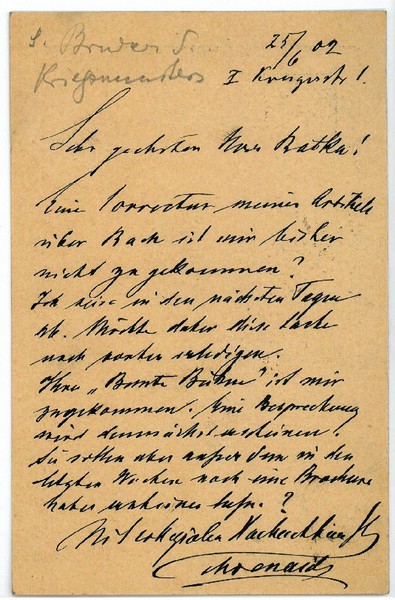 s. Bruder d.
Kriegsministers
25/6 02
I Kruger str 1.
Sehr geehrter Herr Batka!
Eine Correctur meines Artikels
über Bach ist mir bisher
nicht zu gekommen?
Ich reise in den nächsten Tagen
ab. Möchte daher diese Sache
noch vorher erledigen.
Ihre „Bunte Bühne" ist mir
zugekommen. Eine Besprechung
wird demnächst erscheinen.
Sie sollen aber außerdem in den
letzten Wochen noch eine Brochure
haben erscheinen lassen. ?
Mit collegialer Hochachtung